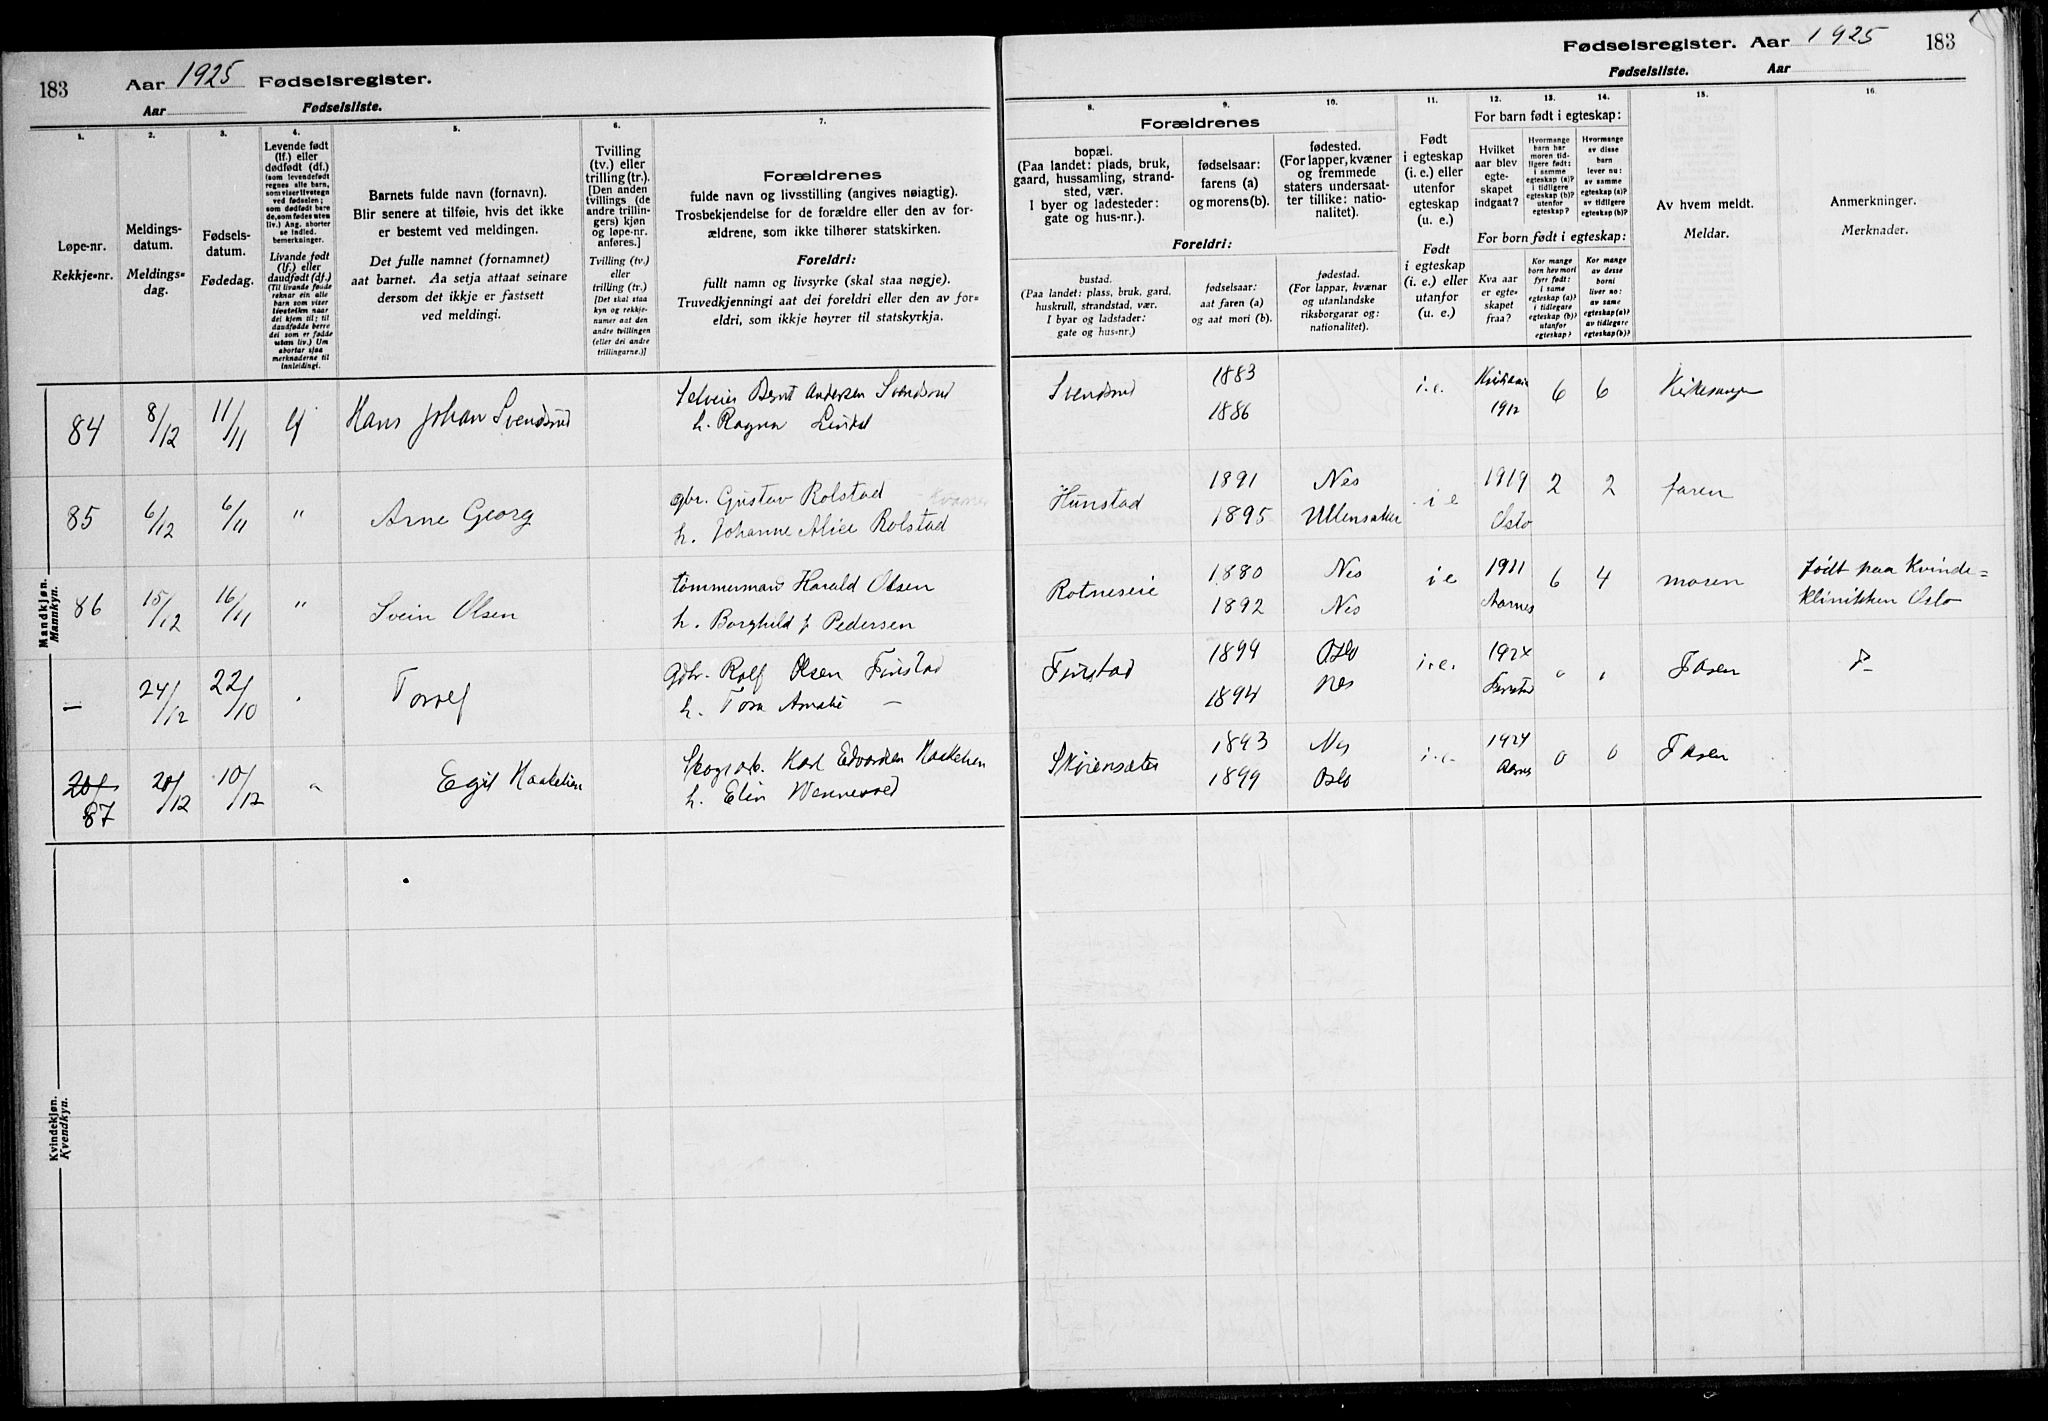 183 Aar 1925 Fødselsregister.
Aar Fødselsliste.
1. 2. 3. 4. 5. 6. 7.
Løpe-nr.
Rekkje-nr.
Meldings-
datum.
Meldings-
dag.
Fødsels-
datum.
Fødedag.
Levende født
(lf.) eller
dødfødt (df.)
(som levendefødt
regnes alle barn,
som viser livstegn
ved fødselen;
som dødfødt bare
de, som fødes uten
liv.) Ang. aborter
se indled.
bemerkninger.
Livande født
(lf.) eller
daudfødt (df.)
(Til livande fødde
reknar ein alle
barn som viser
livsteikn naar
dei kjem til; til
daudfødde berre
dei som er fødde
utan liv.) Um
abortar sjaa
merknaderne til
innleidingi.
Barnets fulde navn (fornavn).
Blir senere at tilføie, hvis det ikke
er bestemt ved meldingen.
Det fulle namnet (fornamnet)
aat barnet. Aa setja attaat seinare
dersom det ikkje er fastsett
ved meldingi.
Tvilling
(tv.) eller
trilling (tr.).
[Den anden
tvillings (de
andre trillin-
gers) kjøn
og løpe-nr.
anføres.]
Tvilling (tv.)
eller
trilling (tr.)
[Det skal staa
kyn og rekkje-
numer aat den
andre tvillingen
(eller dei andre
trillingarne.)]
Forældrenes
fulde navn og livsstilling (angives nøiagtig).
Trosbekjendelse for de forældre eller den av for-
ældrene, som ikke tilhører statskirken.
Foreldri:
fullt namn og livsyrke (skal staa nøgje).
Truvedkjenningi aat dei foreldri eller den av for-
eldri, som ikkje høyrer til statskyrkja.
Mandkjøn.
Mannkyn.
84 8/12 11/11 lf Hans Johan Svendsrud
Selveier Bernt Andersen Svendsrud
h. Ragna
85 6/12 6/11 " Arne Georg
gbr. Gustav Rolstad
h. Johanne Alice Rolstad
86 15/12 16/11 " Svein Olsen
tømmermand Harald Olsen
h. Borghild f. Pedersen
— 24/12 22/10 " Toralf
Gbr. Rolf Olsen Finstad
h. Tora Amalie —
20/
87 20/12 10/12 " Egil Haakelien
Skogsarb. Karl Edvardsen Haakelien
h. Elin
Kvindekjøn.
Kvendkyn.
Fødselsregister. Aar 1925 183
Fødselsliste. Aar
8. 9. 10. 11. 12. 13. 14. 15. 16.
Forældrenes
bopæl.
(Paa landet: plads, bruk,
gaard, hussamling, strand-
sted, vær.
I byer og ladesteder:
gate og hus-nr.).
fødselsaar:
farens (a)
og morens (b).
fødested.
(For lapper, kvæner
og fremmede
staters undersaat-
ter tillike: natio-
nalitet).
Foreldri:
bustad.
(Paa landet: plass, bruk, gard,
huskrull, strandstad, vær.
I byar og ladstader:
gate og hus-nr.)
fødselsaar:
aat faren (a)
og aat mori (b).
fødestad.
(For lappar, kvænar
og utanlandske
riksborgarar og:
nationalitet).
Født
i egteskap
(i. e.) eller
utenfor
egteskap
(u. e.)
Født
i egteskap
(i. e.) eller
utanfor
(u. e.)
For barn født i egteskap:
Hvilket
aar blev
egte-
skapet
indgaat?
Hvormange
barn har
moren tid-
ligere født:
i samme
egteskap (a)?
i tidligere
egteskap (b)?
utenfor
egteskap?
Hvormange
av disse
barn
lever nu:
av samme
egteskap (a)?
av tidligere
egteskap (b)?
For born født i egteskap:
Kva aar
er egte-
skapet
fraa?
Kor mange
born hev mori
fyrr født:
i same
egteskap (a)?
i tidlegare
egteskap (b)?
utanfor
egteskap?
Kor mange
av desse
borni
liver no:
av same
egteskap (a)?
av tidlegare
egteskap (b)?
Av hvem meldt.
Meldar.
Anmerkninger.
Merknader.
Svendsrud 1883 i.e. Kristiania 6 6 Kirkesanger
1886 1912
Hunstad 1891 Nes i e 1919 2 2 faren
1895 Ullensaker Oslo
Rotneseie 1880 Nes i e 1911 6 4 moren født paa Kvinde=
1892 Nes Aarnes klinikken Oslo
Finstad 1894 Oslo i.e. 1924 0 0 Faren
1894 Nes
1893 Nes i.e. 1924 0 0 Faren
1899 Oslo Aarnes